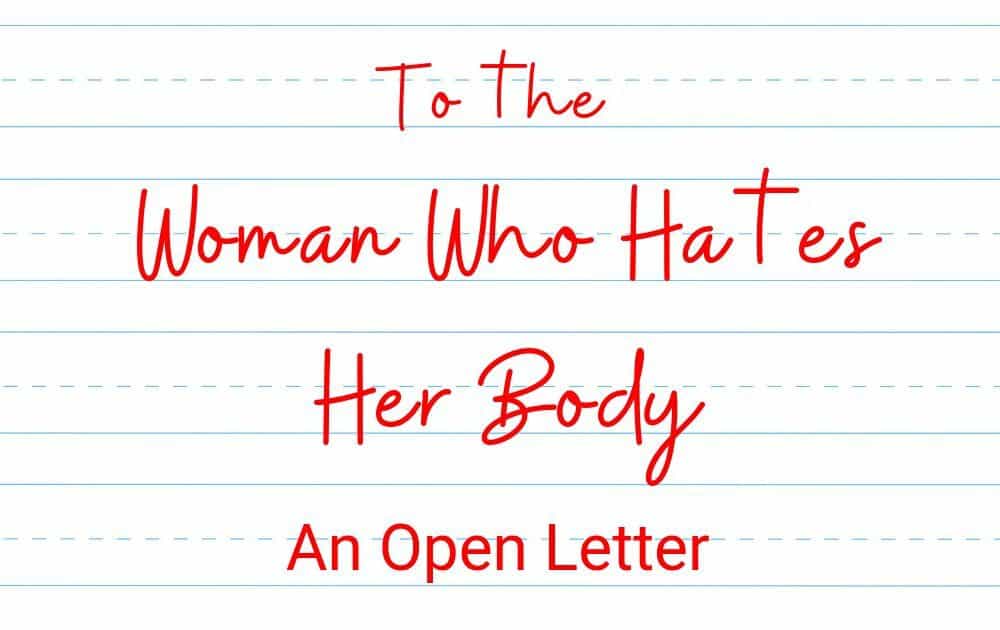 To the
Woman Who Hates
Her Body
An Open Letter